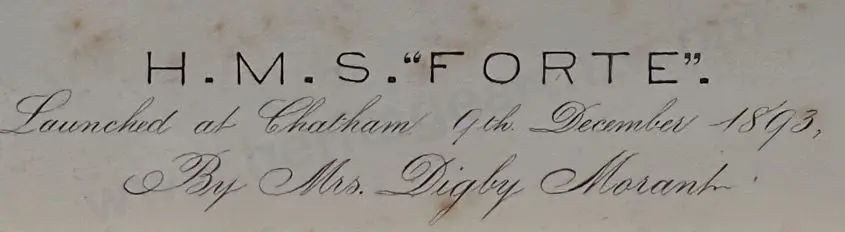 H.M.S. "FORTE".
Launched at Chatham 9th. December 1893,
By Mrs. Digby Morant.